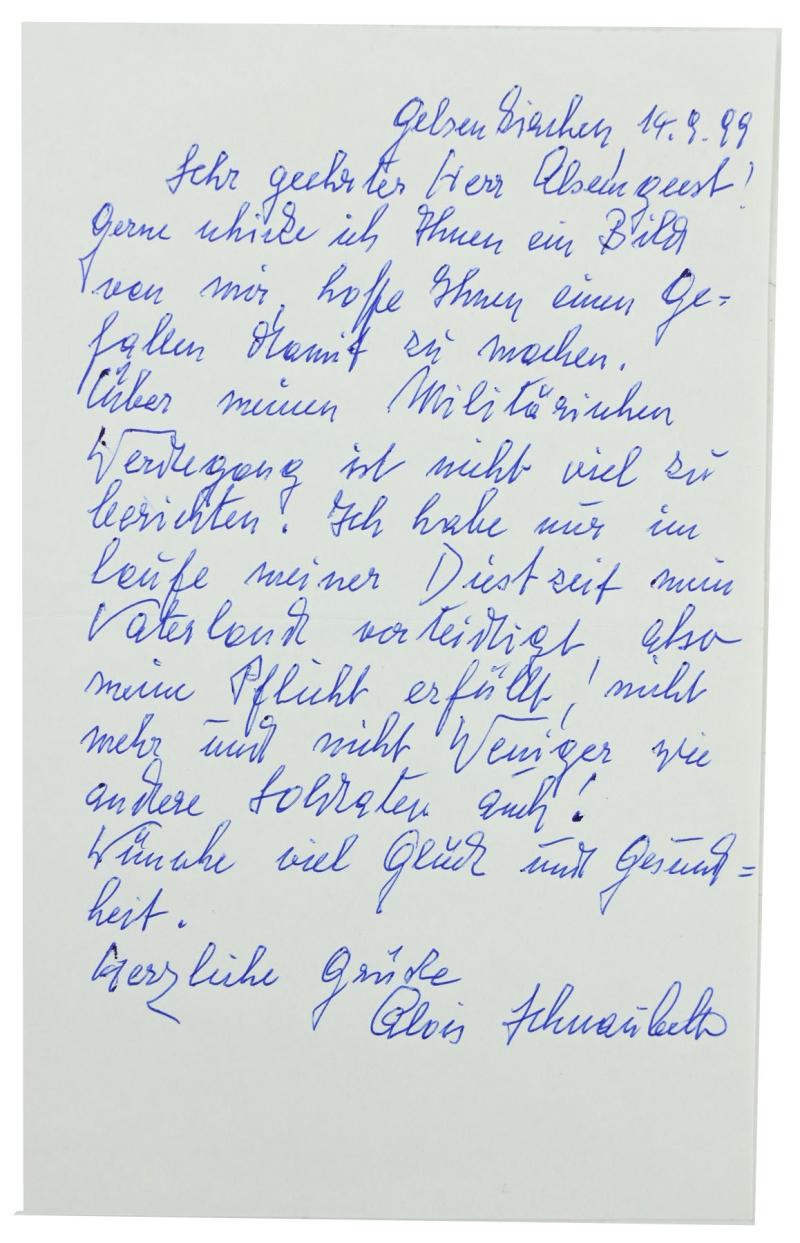 Gelsenkirchen, 14.9.99
Sehr geehrter Herr Alsemgeest!
Gerne schicke ich Ihnen ein Bild
von mir, hoffe Ihnen einen Ge=
fallen damit zu machen.
Über meinen Militärischen
Werdegang ist nicht viel zu
berichten. Ich habe nur im
laufe meiner Diestzeit mein
Vaterland verteidtigt, also
meine Pflicht erfüllt, nicht
mehr und nicht Weniger wie
andere Soldaten auch!
Wünsche viel Glück und Gesund=
heit.
Herzliche Grüße
Alois Schnaubelt